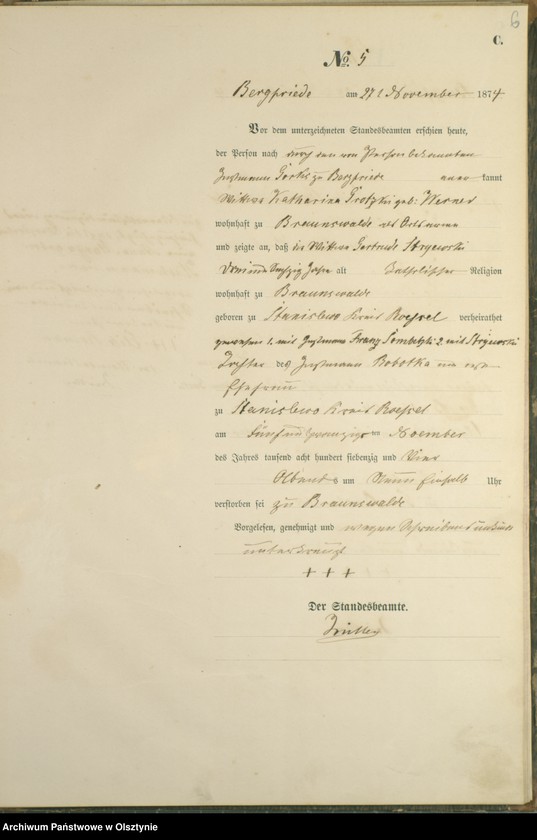 6
C.
No. 5
Bergfriede am 27t November 1874
Vor dem unterzeichneten Standesbeamten erschien heute,
der Person nach durch den von Person bekannten
Instmann zu Bergfriede anerkannt
Wittwe Katharina Grotzki geb: Werner
wohnhaft zu Braunswalde als Ortsarme
und zeigte an, daß die Wittwe Gertrude Stryewski
Drei und Sechzig Jahre alt Katholischer Religion
wohnhaft zu Braunswalde
geboren zu Stanislewo Kreis Roessel verheirathet
gewesen 1, mit Instmann Franz 2. mit Stryewski
Tochter des Instmann Robotka und
Ehefrau
zu Stanislewo Kreis Roessel
am fünf und zwanzigsten November
des Jahres tausend acht hundert siebenzig und Vier
Abends um Neun einhalb Uhr
verstorben sei zu Braunswalde
Vorgelesen, genehmigt und wegen Schreibensunkunde
unterkreuzt
+ + +
Der Standesbeamte.
Archiwum Państwowe w Olsztynie